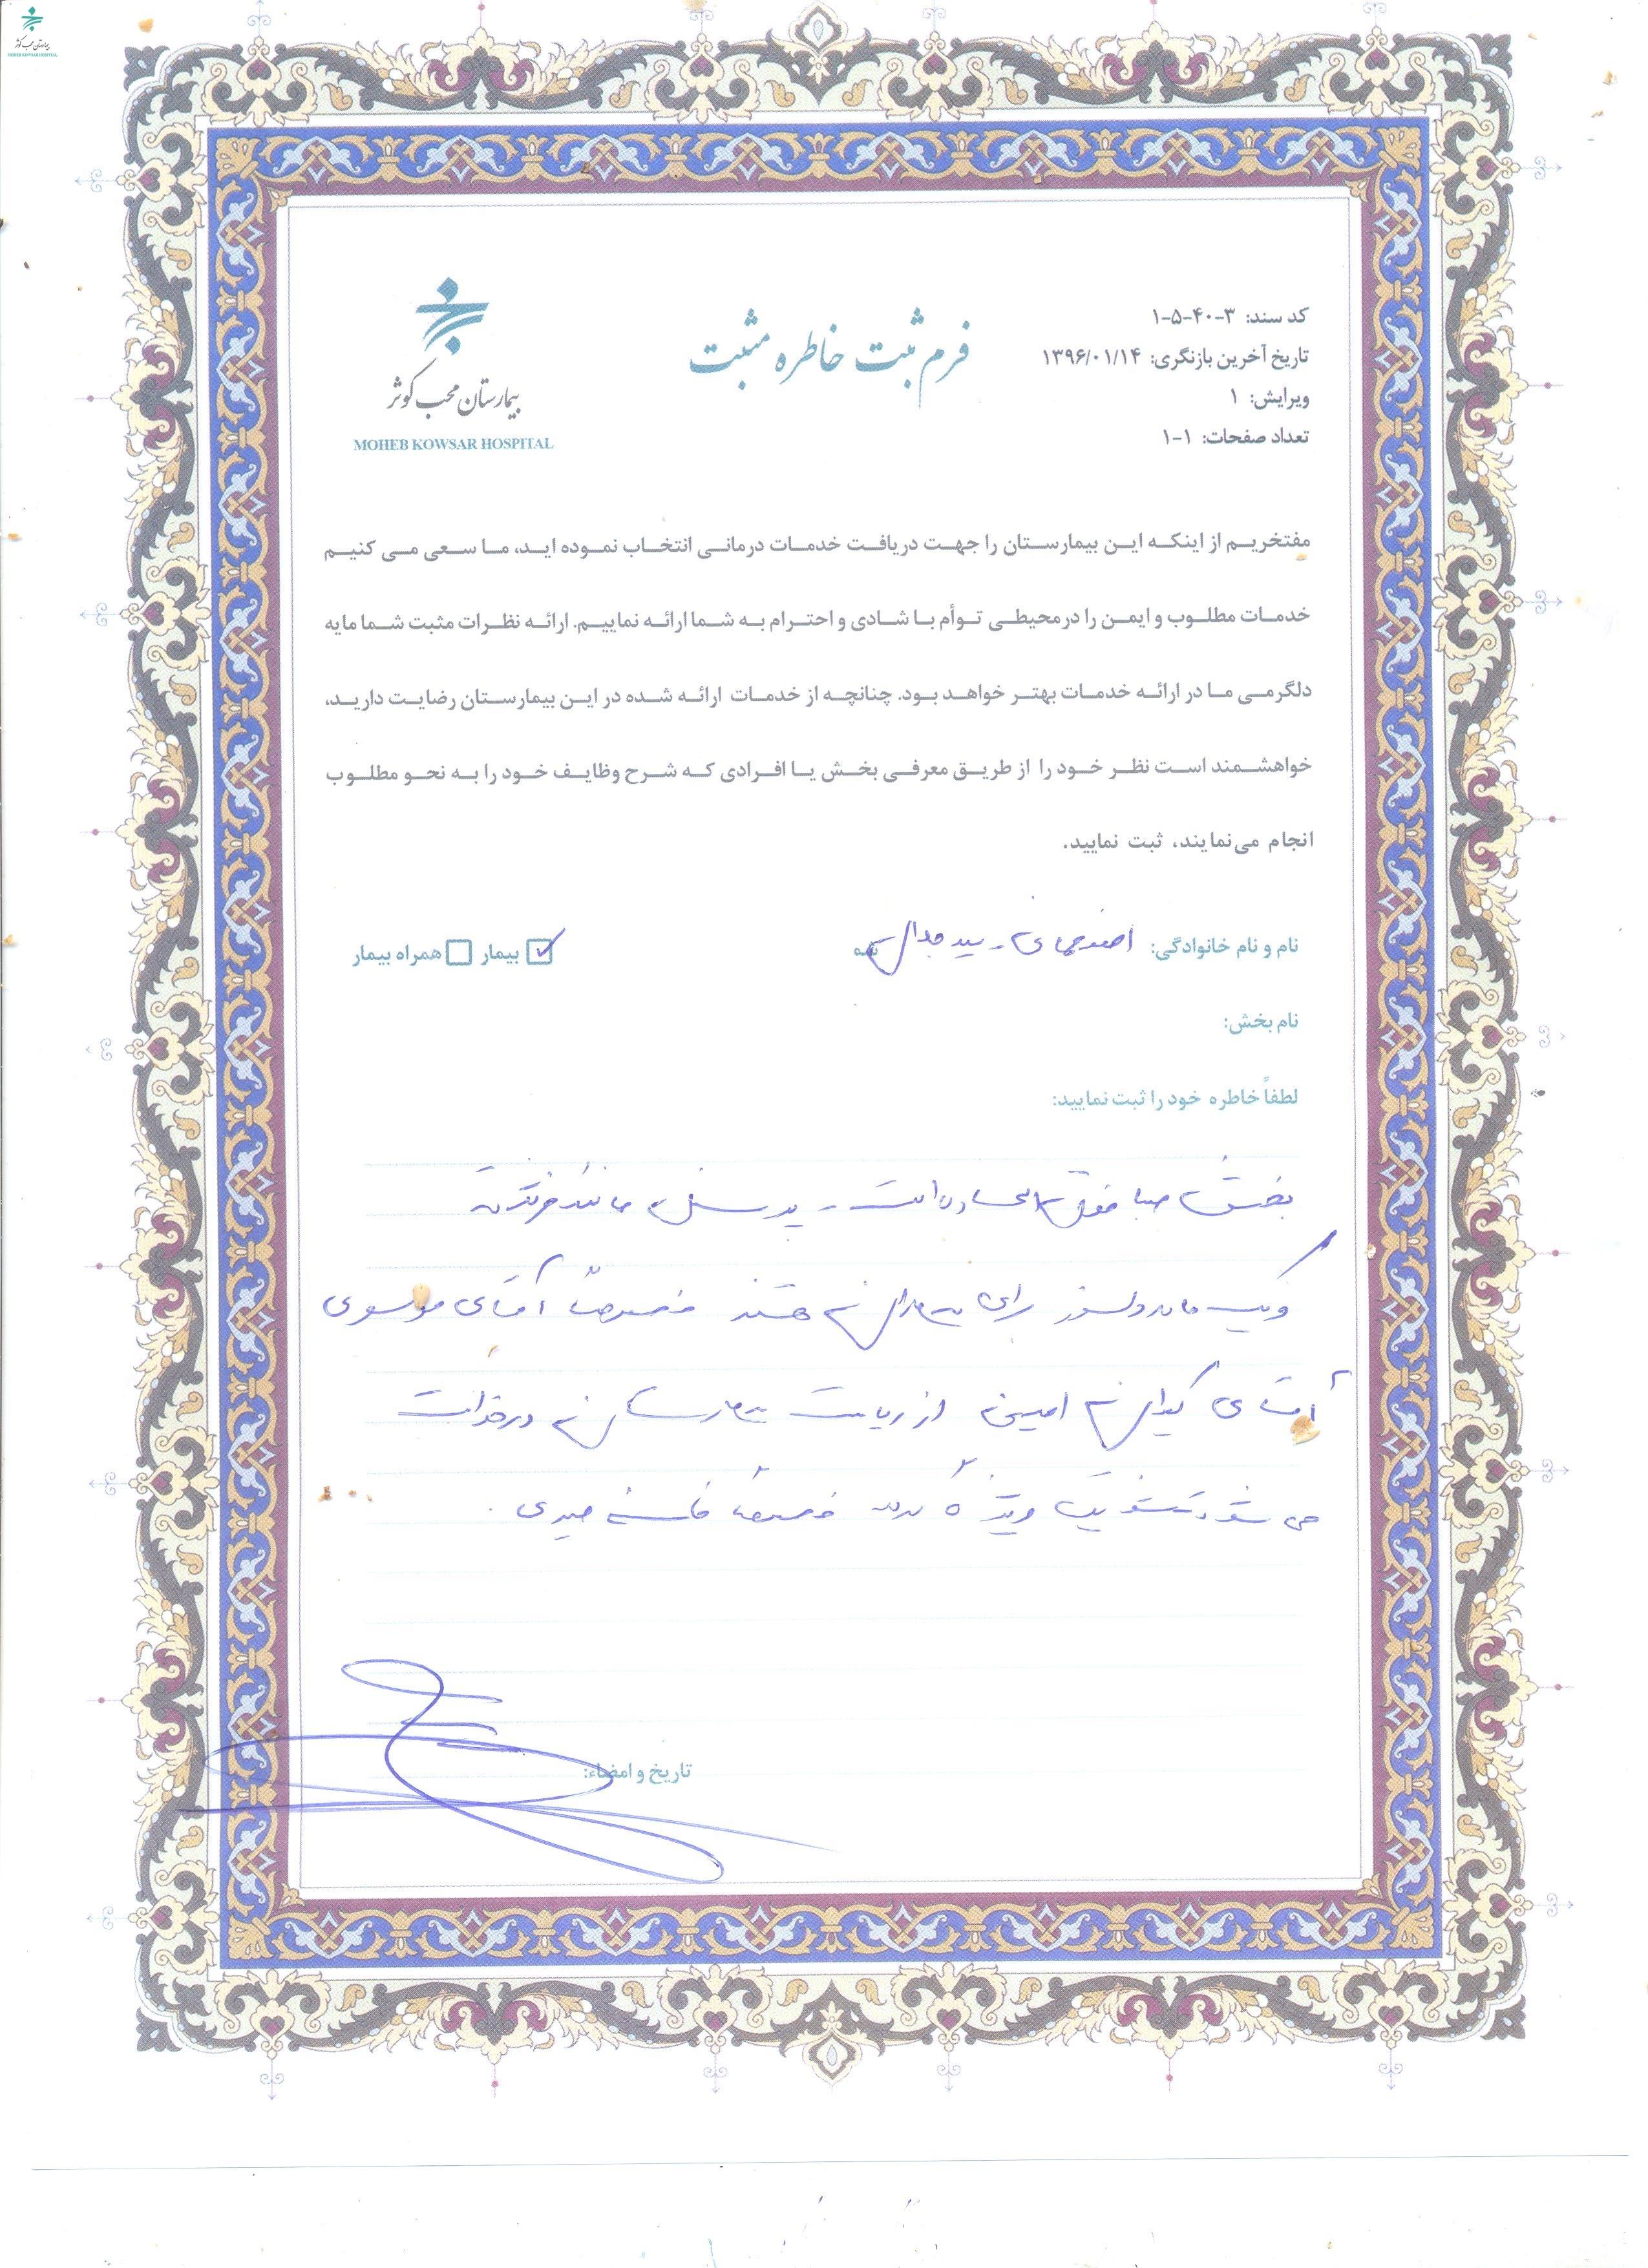 بیمارستان محب کوثر
MOHEB KOWSAR HOSPITAL
کد سند: ۳-۴۰-۵-۱
تاریخ آخرین بازنگری: ۱۳۹۶/۰۱/۱۴
ویرایش: ۱
تعداد صفحات: ۱-۱
فرم ثبت خاطره مثبت
بیمارستان محب کوثر
MOHEB KOWSAR HOSPITAL
مفتخریم از اینکه این بیمارستان را جهت دریافت خدمات درمانی انتخاب نموده اید، ما سعی می کنیم
خدمات مطلوب و ایمن را در محیطی توأم با شادی و احترام به شما ارائه نماییم. ارائه نظرات مثبت شما مایه
دلگرمی ما در ارائه خدمات بهتر خواهد بود. چنانچه از خدمات ارائه شده در این بیمارستان رضایت دارید،
خواهشمند است نظر خود را از طریق معرفی بخش یا افرادی که شرح وظایف خود را به نحو مطلوب
انجام می‌نمایند، ثبت نمایید.
نام و نام خانوادگی: بیمار همراه بیمار
نام بخش:
لطفاً خاطره خود را ثبت نمایید:
بخش صبا فوق العاده است - پرسنل مانند فرشته
و یک مادر دلسوز برای بیماران هستند خصوصاً آقای موسوی
آقای از ریاست بیمارستان درخواست
می شود تشویق ویژه گردند خصوصاً خانم
تاریخ و امضاء: